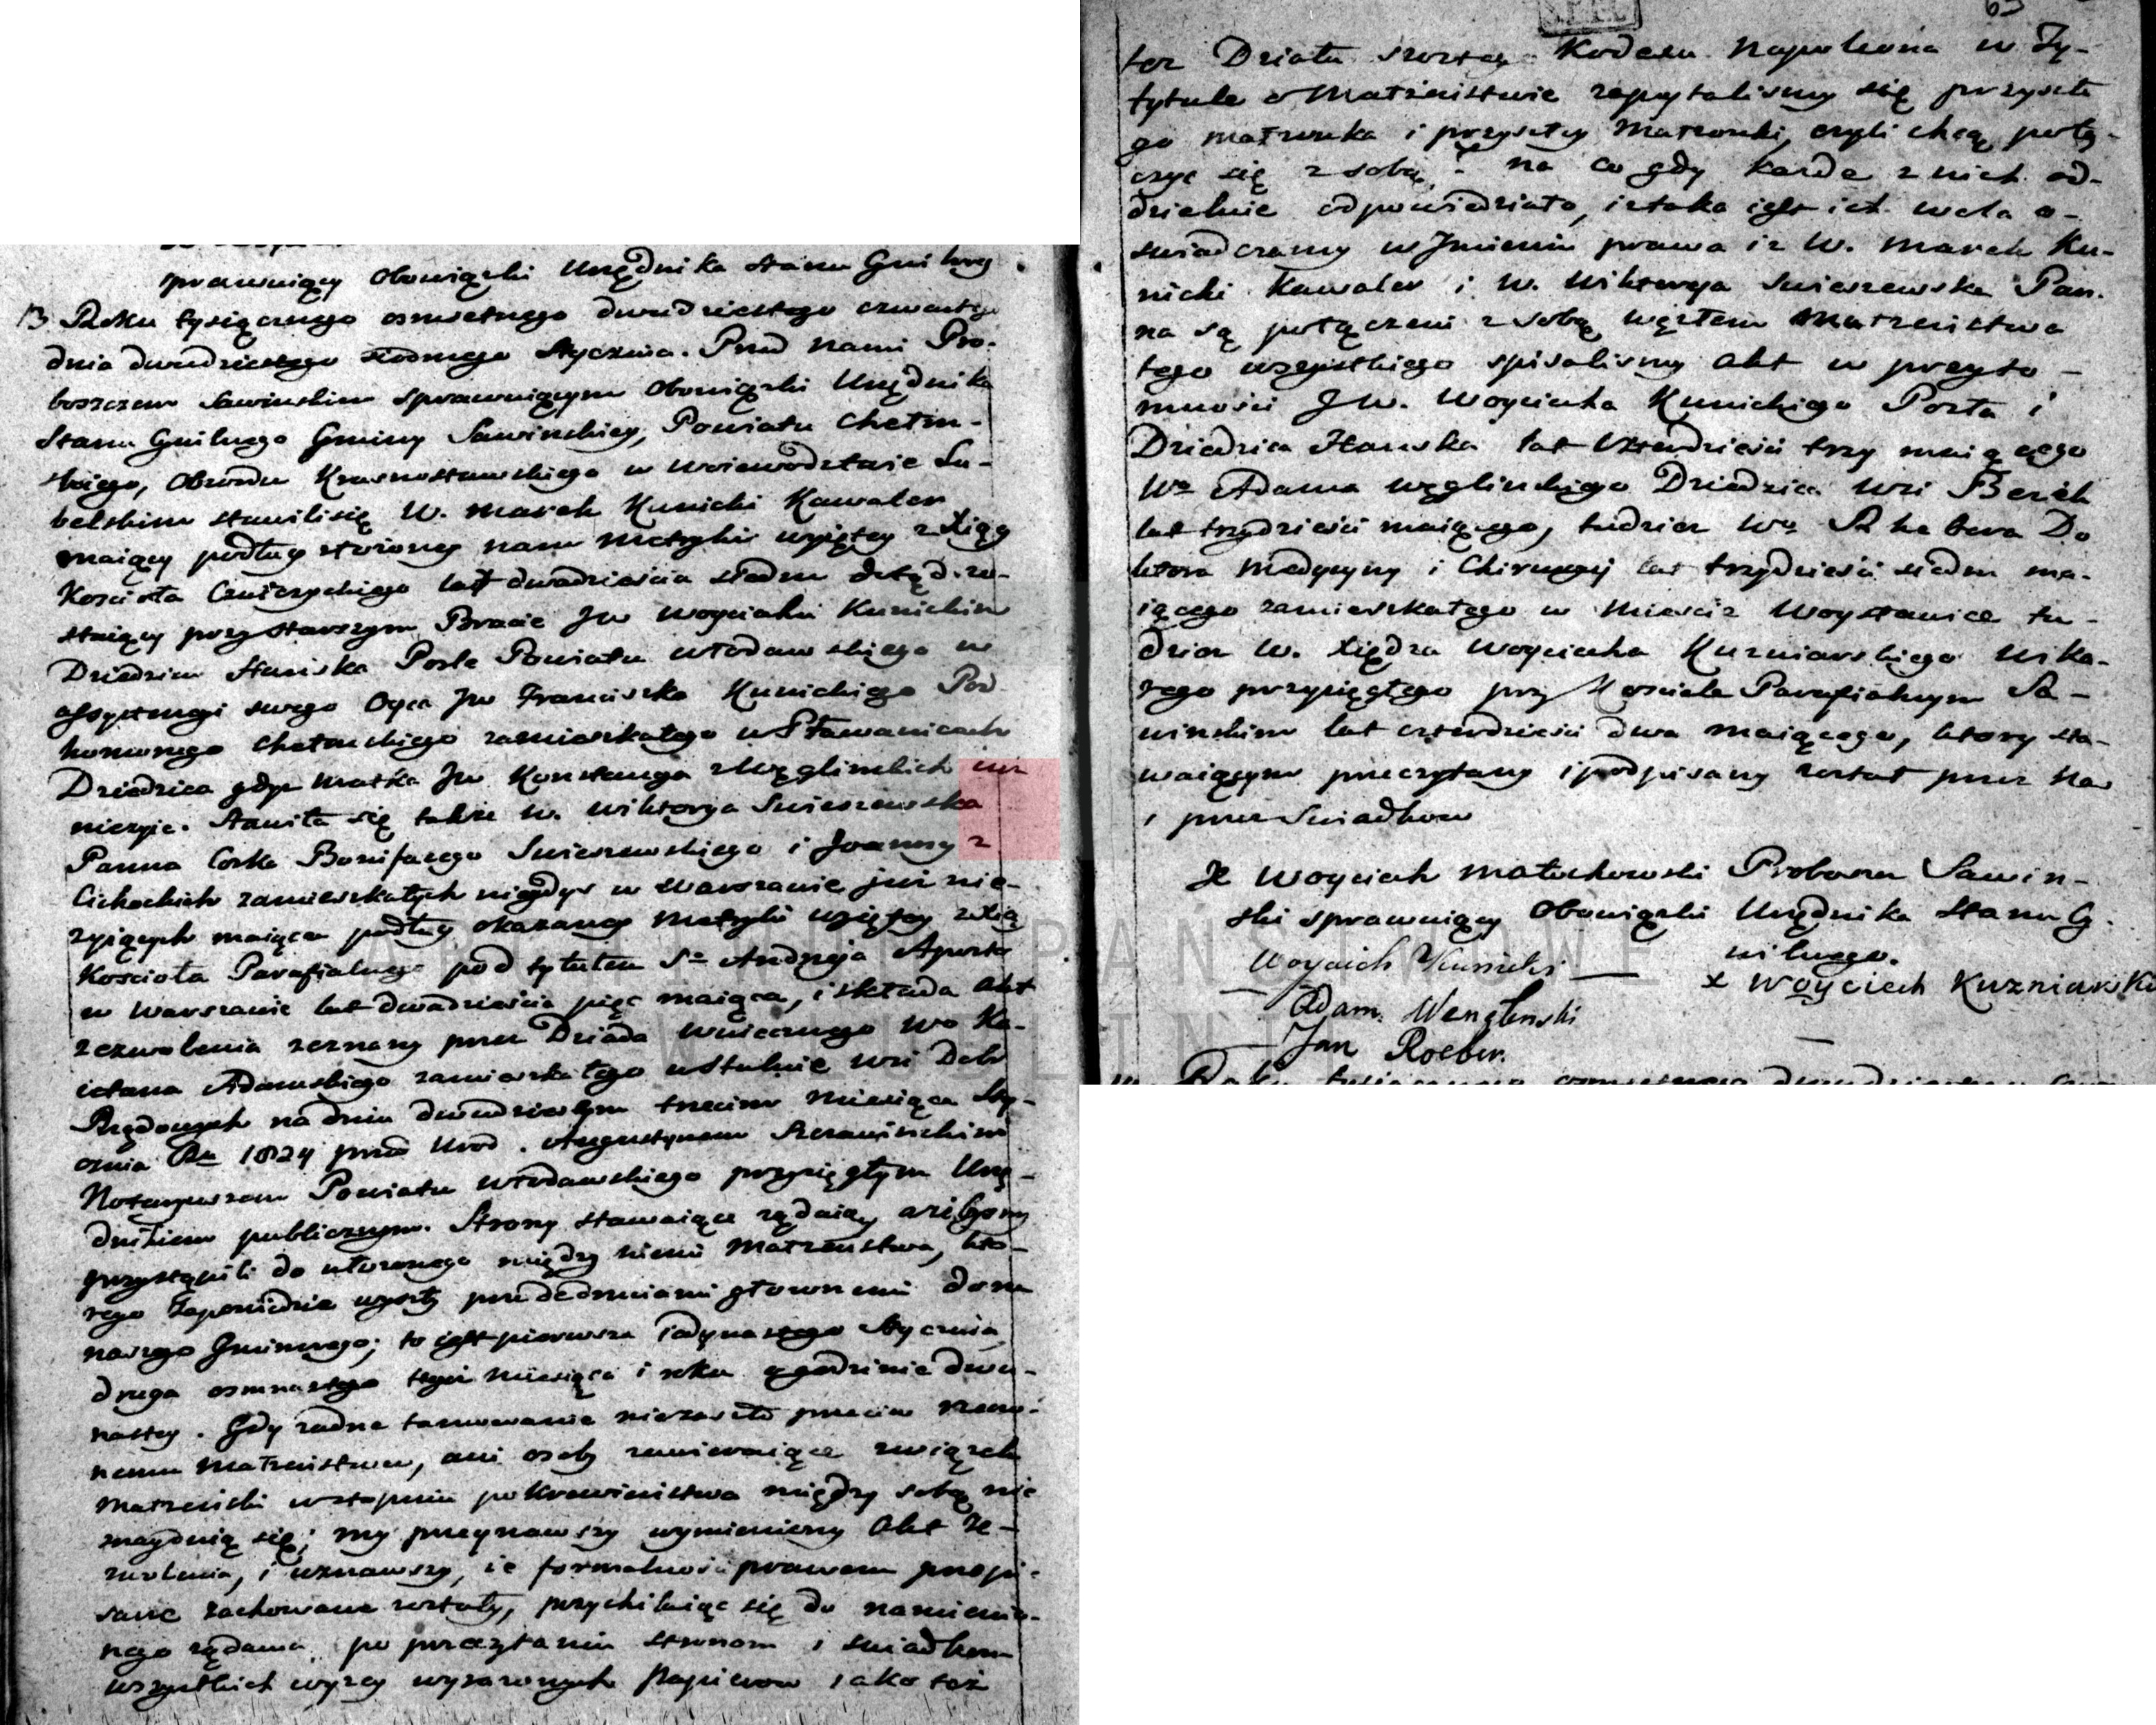 sprawuiący Obowiązki Urzędnika stanu Cywilnego
13 Roku tysiącznego osmsetnego dwudziestego czwartego
dnia dwudziestego siodmego Stycznia. Przed nami Pro-
boszczem Sawinskim sprawuiącym Obowiązki Urzędnika
Stanu Cywilnego Gminy Sawinskiey, Powiatu Chełm-
skiego, Obwodu Krasnostawskiego w Woiewodztwie Lu-
belskim stawili się W. Marek Kunicki Kawaler
maiący podług złożoney nam Metryki wyiętey z Xiąg
Kościoła lat dwadzieścia siedm dotąd zo-
staiący przy Starszym Bracie JW Woyciechu Kunickim
Dziedzicu Stawska Posle Powiatu Włodawskiego w
assystencyi swego Oyca JW Franciszka Kunickiego Pod
komorzego Chełmskiego zamieszkałego w Stawanicach
Dziedzica gdyż Matka JW Konstancya z Węglinskich iuż
nieżyie. Stawiła się także W. Wiktorya Swieszewska
Panna Corka Bonifacego Swieszewskiego i Joanny z
Cichockich zamieszkałych niegdyś w Warszawie już nie-
żyiących maiąca podług okazaney Metryki wyiętey z Xiąg
Kościoła Parafialnego pod tytułem Sgo Andrzeja Aposto
w Warszawie lat dwadzieścia pięć maiąca, i składa Akt
zezwolenia zeznany przez Dziada Wo Ka-
ietana Adamskiego zamieszkałego wsi Dobr
Rządowych na dniu dwudziestym trzecim Miesiąca Sty-
cznia Ru 1824 przed Urod. Augustynem
Notaryuszem Powiatu Włodawskiego przysięgłym Urzę-
dnikiem publicznym. Strony stawaiące żądaią ażebyśmy
przystąpili do ułożonego między niemi Małżeństwa, kto-
rego Zapowiedzie wyszły przed drzwiami głownemi domu
naszego Gminnego; to iest pierwsza iedynastego Stycznia
druga osmnastego tegoż Miesiąca i roku o godzinie dwu-
nastey. Gdy żadne tamowanie niezaszło przeciw rzeczo-
nemu Małżeństwu, ani osoby zawieraiące związek
Małżeński w stopniu pokrewieństwa między sobą nie
znayduią się; my przeyrzawszy wymieniony Akt Ze-
zwolenia, i uznawszy, że formalności prawem przepi-
sane zachowane zostały, przychilaiąc się do namienio-
nego żądania, po przeczytaniu stronom i swiadkom
wszystkich wyżey wyrażonych Papierow iako też
też Działu szostego Kodexu Napoleona w Ty-
tytule o Małżeństwie zapytalismy się przyszłe
go małżonka i przyszłey Małżonki, czyli chcą połą-
czyć się z sobą; na co gdy każde z nich od-
dzielnie odpowiedziało, iż taka iest ich wola o-
świadczamy w Imieniu prawa iż W. Marek Ku-
nicki Kawaler i W. Wiktorya Swieszewska Pan-
na są połączeni z sobą węzłem Małżeństwa
tego wszystkiego spisalismy Akt w przyto-
mności JW. Woyciecha Kunickiego Posła i
Dziedzica Stawska lat trzy maiącego
Wo Adama Węglinskiego Dziedzica Wsi
lat trzydzieści maiącego, tudzież Wo Do
ktora Medycyny i Chirurgij lat trzydzieści siedm ma-
iącego zamieszkałego w Mieście Woysławice tu-
dzież W. Xiędza Woyciecha Kuzniarskiego Wika-
rego przysięgłego przy Kościele Parafialnym Sa-
winskim lat czterdzieści dwa maiącego, ktory sta-
waiącym przeczytany i podpisany został przez Nas
i przez Swiadkow
X Woyciech Małuchowski Proboszcz Sawin-
ski sprawuiący Obowiązki Urzędnika Stanu Cy-
wilnego.
Woyciech Kunicki
X Woyciech Kuzniarski
Adam Wenglenski
Jan Roeber.
ARCHIWUM PAŃSTWOWE
W LUBLINIE